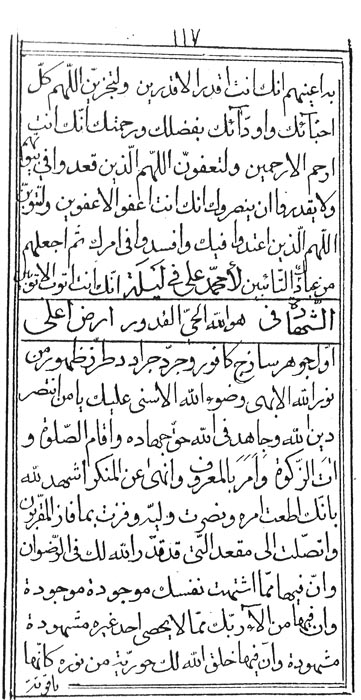 ١١٧
بداعيتهم انك انت اقدر الاقدرين ولتجزين اللهم كل
احبائك واودائك بفضلك ورحمتك انك انت
ارحم الارحمين ولتعفون اللهم الذين قعدوا فى بيوتهم
ولا يقدروا ان ينصروك انك انت اعفو الاعفوين ولتتوبن
اللهم الذين اعتدوا فيك وافسدوا فى امرك ثم اجعلهم
من عبادك التائبين لأمحمد على فى ليلة انك انت اتوب الاتوبين
الشهادة فى هو الله الحى القدور ارض اعلى
اول جوهر ساذج كافور وجرد جراد طرز ظهور من
نور الله الابهى وضوء الله الاسنى عليك يا من انتصر
دين الله وجاهد فى الله حق جهاده واقام الصلوة و
ات الزكوة وامر بالمعروف وانهى عن المنكر اشهد لله
بانك اطعت امره ونصرت وليه وفزت بما فاز المقربون
واتصلت الى مقعد التى قد قدر الله لك فى الرضوان
وان فيها مما اشتهت نفسك موجودة موجودة
وان فيها من الآء ربك مما لا يحصى احد غيره مشهودة
مشهودة وان فيها خلق الله لك حورية من نوره كانها